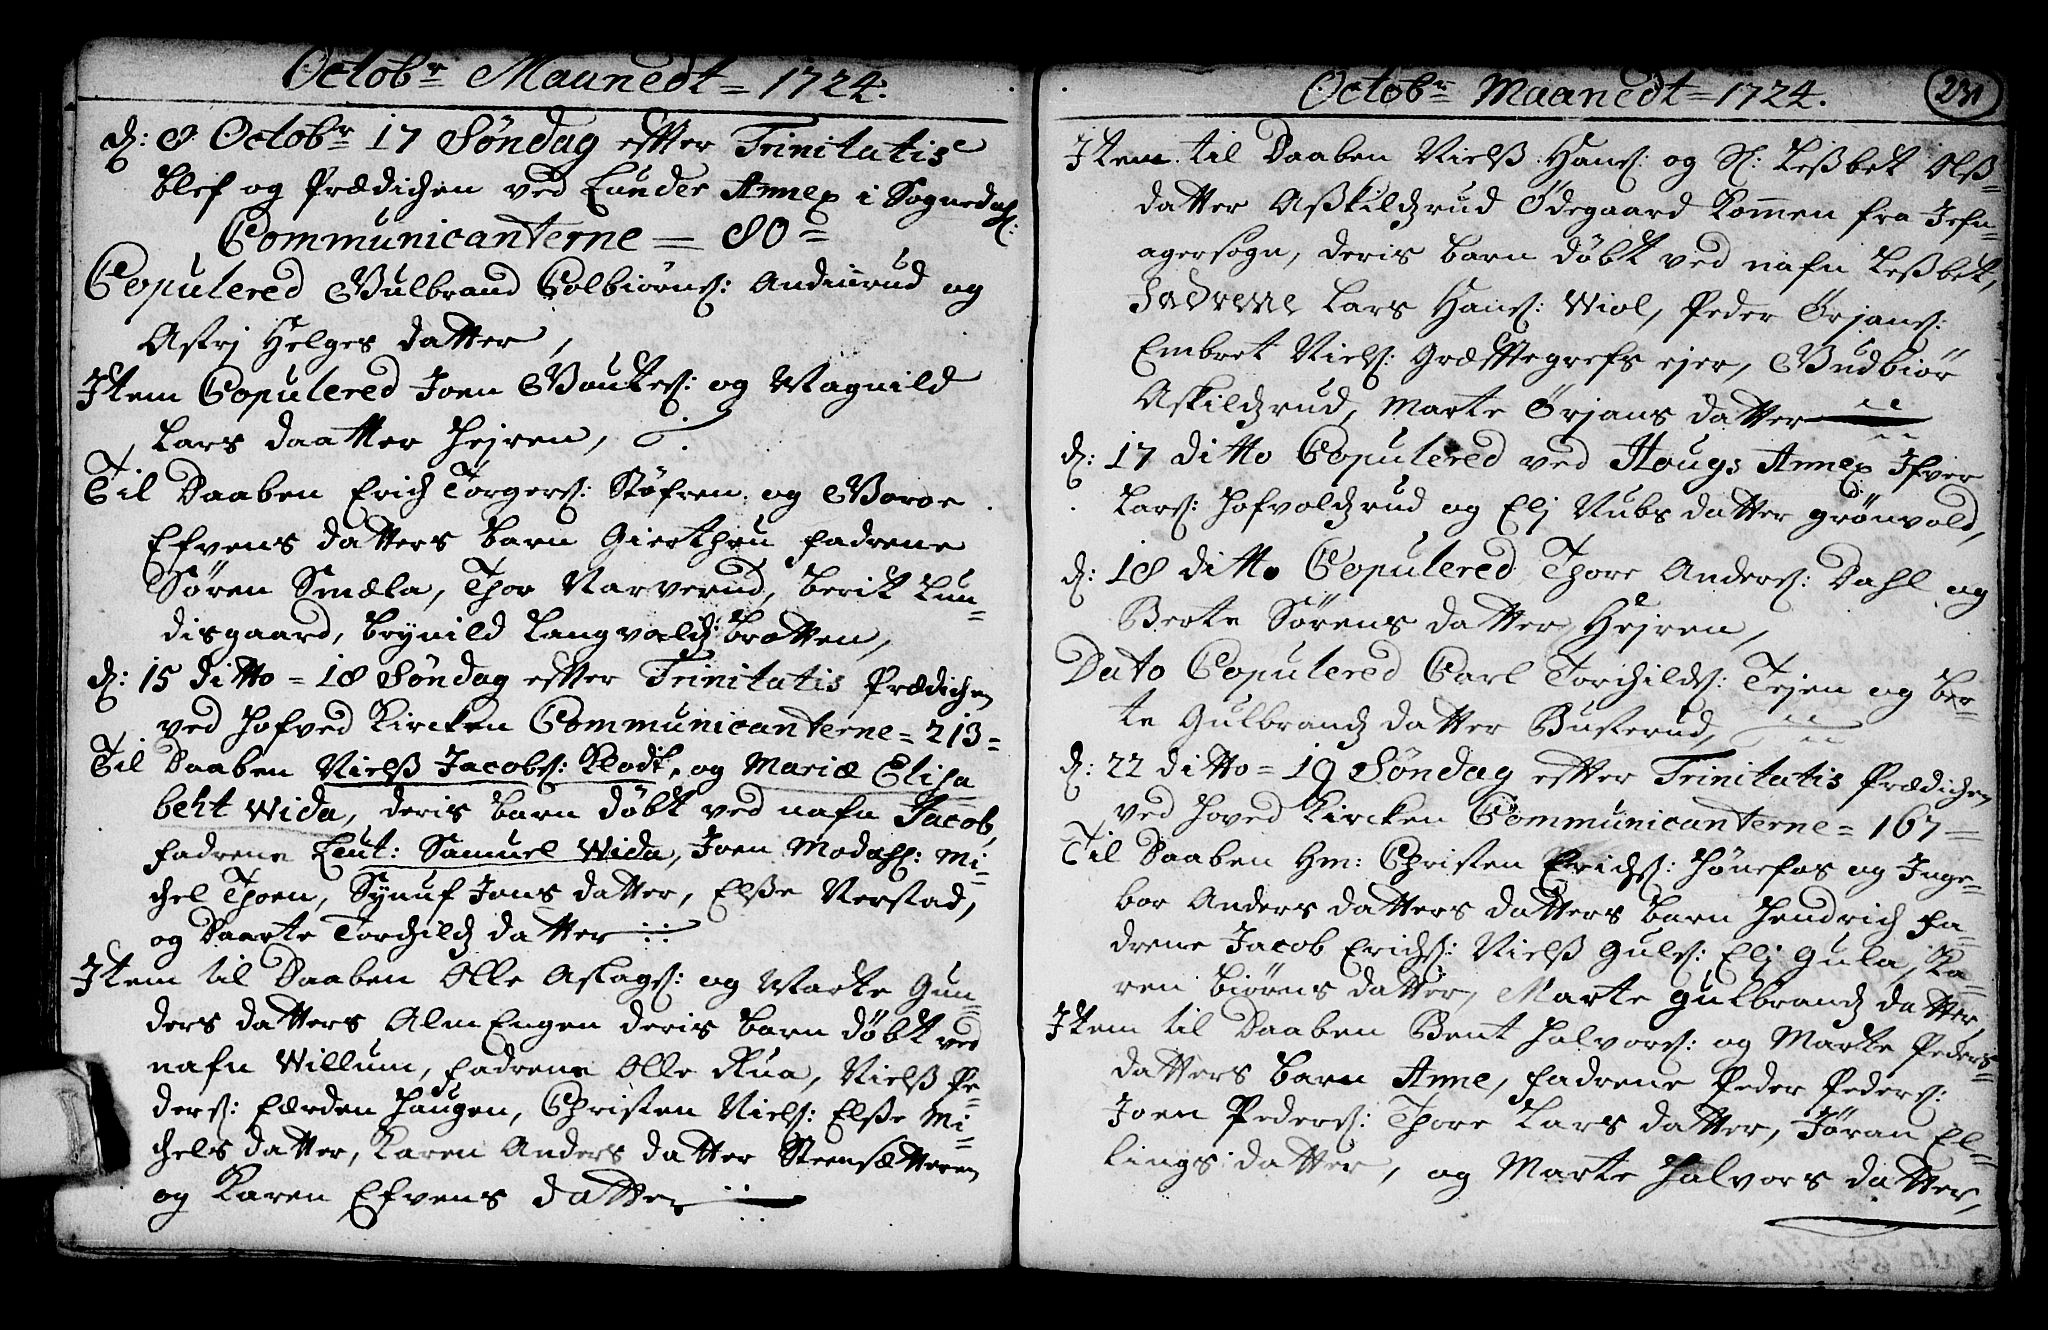 Octobr Maanedt = 1724.
d: 8 Octobr 17 Søndag efter Trinitatis
blef og Prædichen ved Lunder Annex i Sognedahl:
Communicanterne = 80 =
Copulered Gulbrand Colbiørns: Andiurud og
Astrj Helges datter,
Item Copulered Joen Goutes: og Magnild
Lars daatter Hejren,
Til Daaben Erich Torgers: Støfren og Goroe
Efvens datters barn Gierthru fadrene
Søren Smæla, Thor Narverud, berit Lun=
disgaard, brynild Langvaldz bratten,
d: 15 ditto = 18 Søndag efter Trinitatis Prædichen
ved hofved Kircken Communicanterne = 213 =
Til Daaben Nielß Jacobs: Klodt, og Mariæ Elisa
beht Wida, deris barn døbt ved nafn Jacob,
fadrene Leut: Samuel Wida, Joen Modahl: Mi=
chel Thoen, Synuf Jons datter, Elße Verstad,
og Daarte Torchildz datter
Item til Daaben Olle Aslags: og Marte Gun=
ders datters Alm Engen deris barn døbt ved
nafn Willum, fadrene Olle Rua, Nielß Pe=
ders: færden haugen, Christen Niels: Elße Mi=
chels datter, Karen Anders datter Steensætteren
og Karen Efvens datter
Octobr Maanedt = 1724.
231
Item til Daaben Nielß Hans: og Sl: Leßbet Olß=
datter Aßkildzrud Ødegaard kommen fra Jefn=
agersogn, deris barn døbt ved nafn Leßbet,
fadrene Lars Hans: Wiol, Peder Ørjans:
Embret Niels: Græsttegrefs ejer, Gudbiør
Askildzrud, Marte Ørjans datter
d: 17 ditto Copulered ved Hougs Annex Ifver
Lars: hofvoldzrud og Elj Nubs datter grønvold,
d: 18 ditto Copulered Thore Anders: Dahl og
Berte Sørens datter Hejren,
Dato Copulered Carl Torchilds: Tejen og ber=
te Gulbrandz datter Buskerud,
d: 22 ditto = 19 Søndag efter Trinitatis Prædichen
ved hoved Kircken Communicanterne = 167 =
Til Daaben Hm: Christen Erichs: hønefos og Inge=
bor Anders datters datters barn hendrich fa=
drene Jacob Erichs: Nielß Guls: Elj Gula, Ka=
ren biørns datter, Marte gulbrandz datter,
Item til Daaben Bent halvors: og Marte Peders=
datters barn Anne, fadrene Peder Peders:
Joen Peders: Thore Lars datter, Jøran El=
lings datter, og Marte halvors datter,